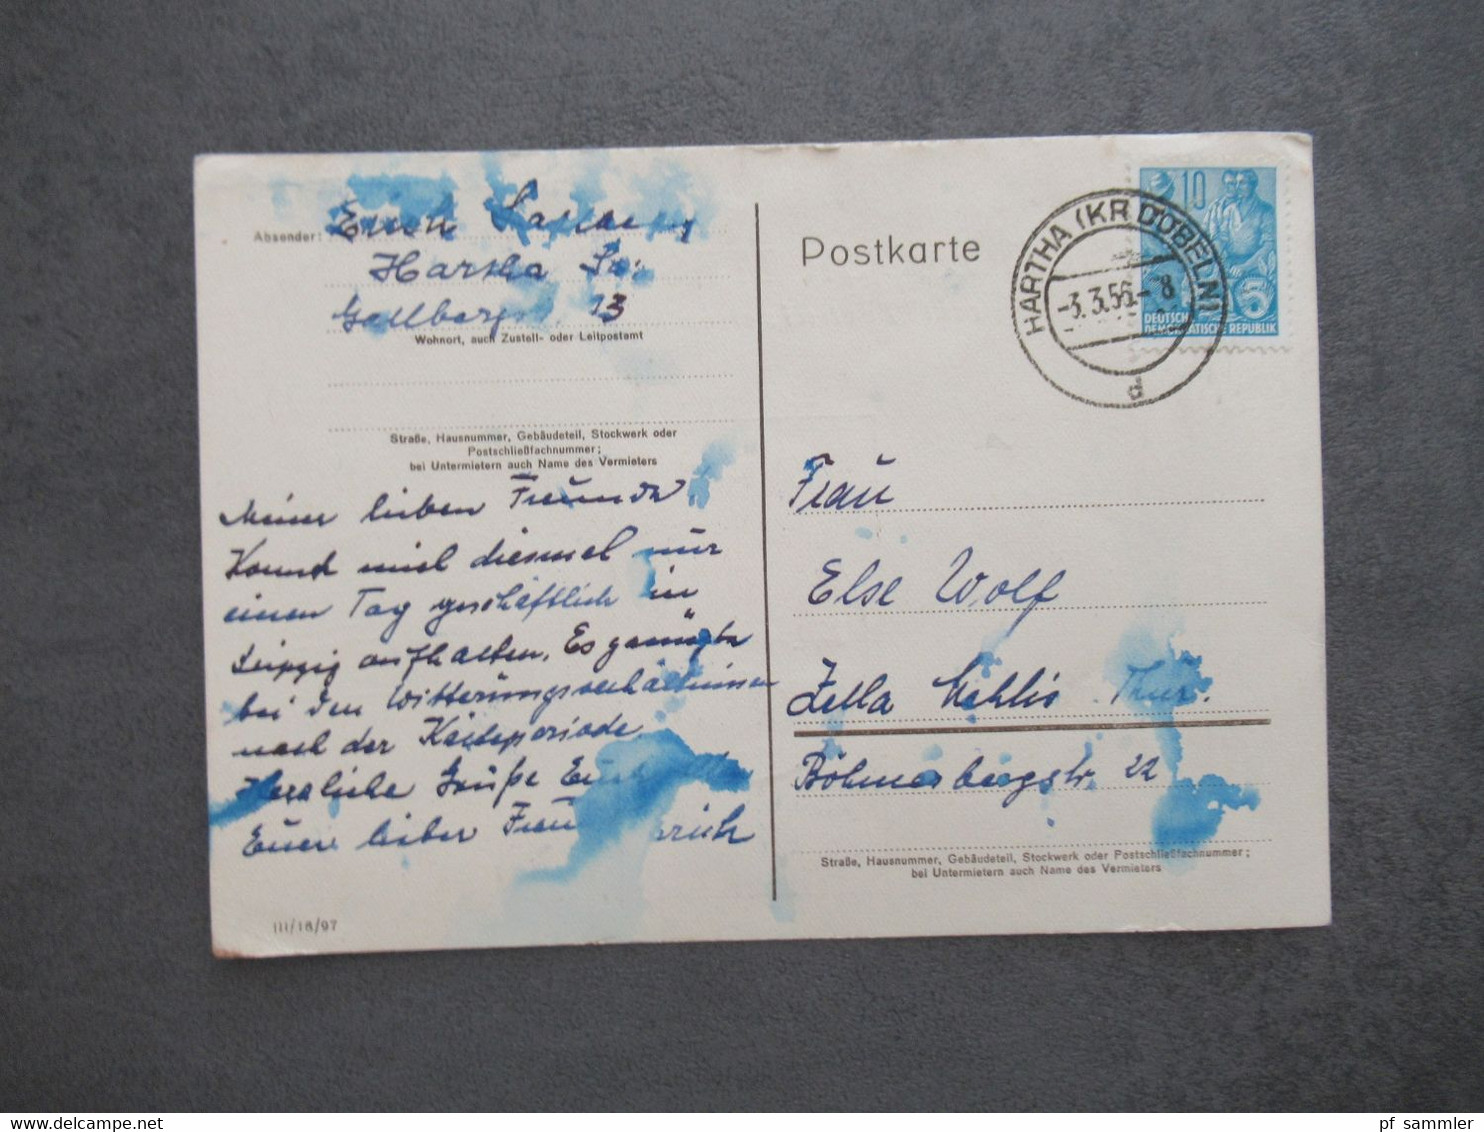 Absender: Erich
Hartha Sa.
13
Wohnort, auch Zustell- oder Leitpostamt
Straße, Hausnummer, Gebäudeteil, Stockwerk oder
Postschließfachnummer;
bei Untermietern auch Name des Vermieters
Meine lieben Freunde
Konnt mich diesmal nur
einen Tag geschäftlich in
Leipzig aufhalten. Es genügte
bei den Witterungsverhältnissen
nach der Kälteperiode
Herzliche Grüße Euch
Euer lieber
III/18/97
Postkarte
HARTHA (KR DÖBELN)
-3.3.56.-8
a
10
5
DEUTSCHE
DEMOKRATISCHE REPUBLIK
Frau
Else Wolf
Zella Mehlis Thür.
Böhmerbergstr. 22
Straße, Hausnummer, Gebäudeteil, Stockwerk oder Postschließfachnummer;
bei Untermietern auch Name des Vermieters
www.delcampe.net
pf sammler